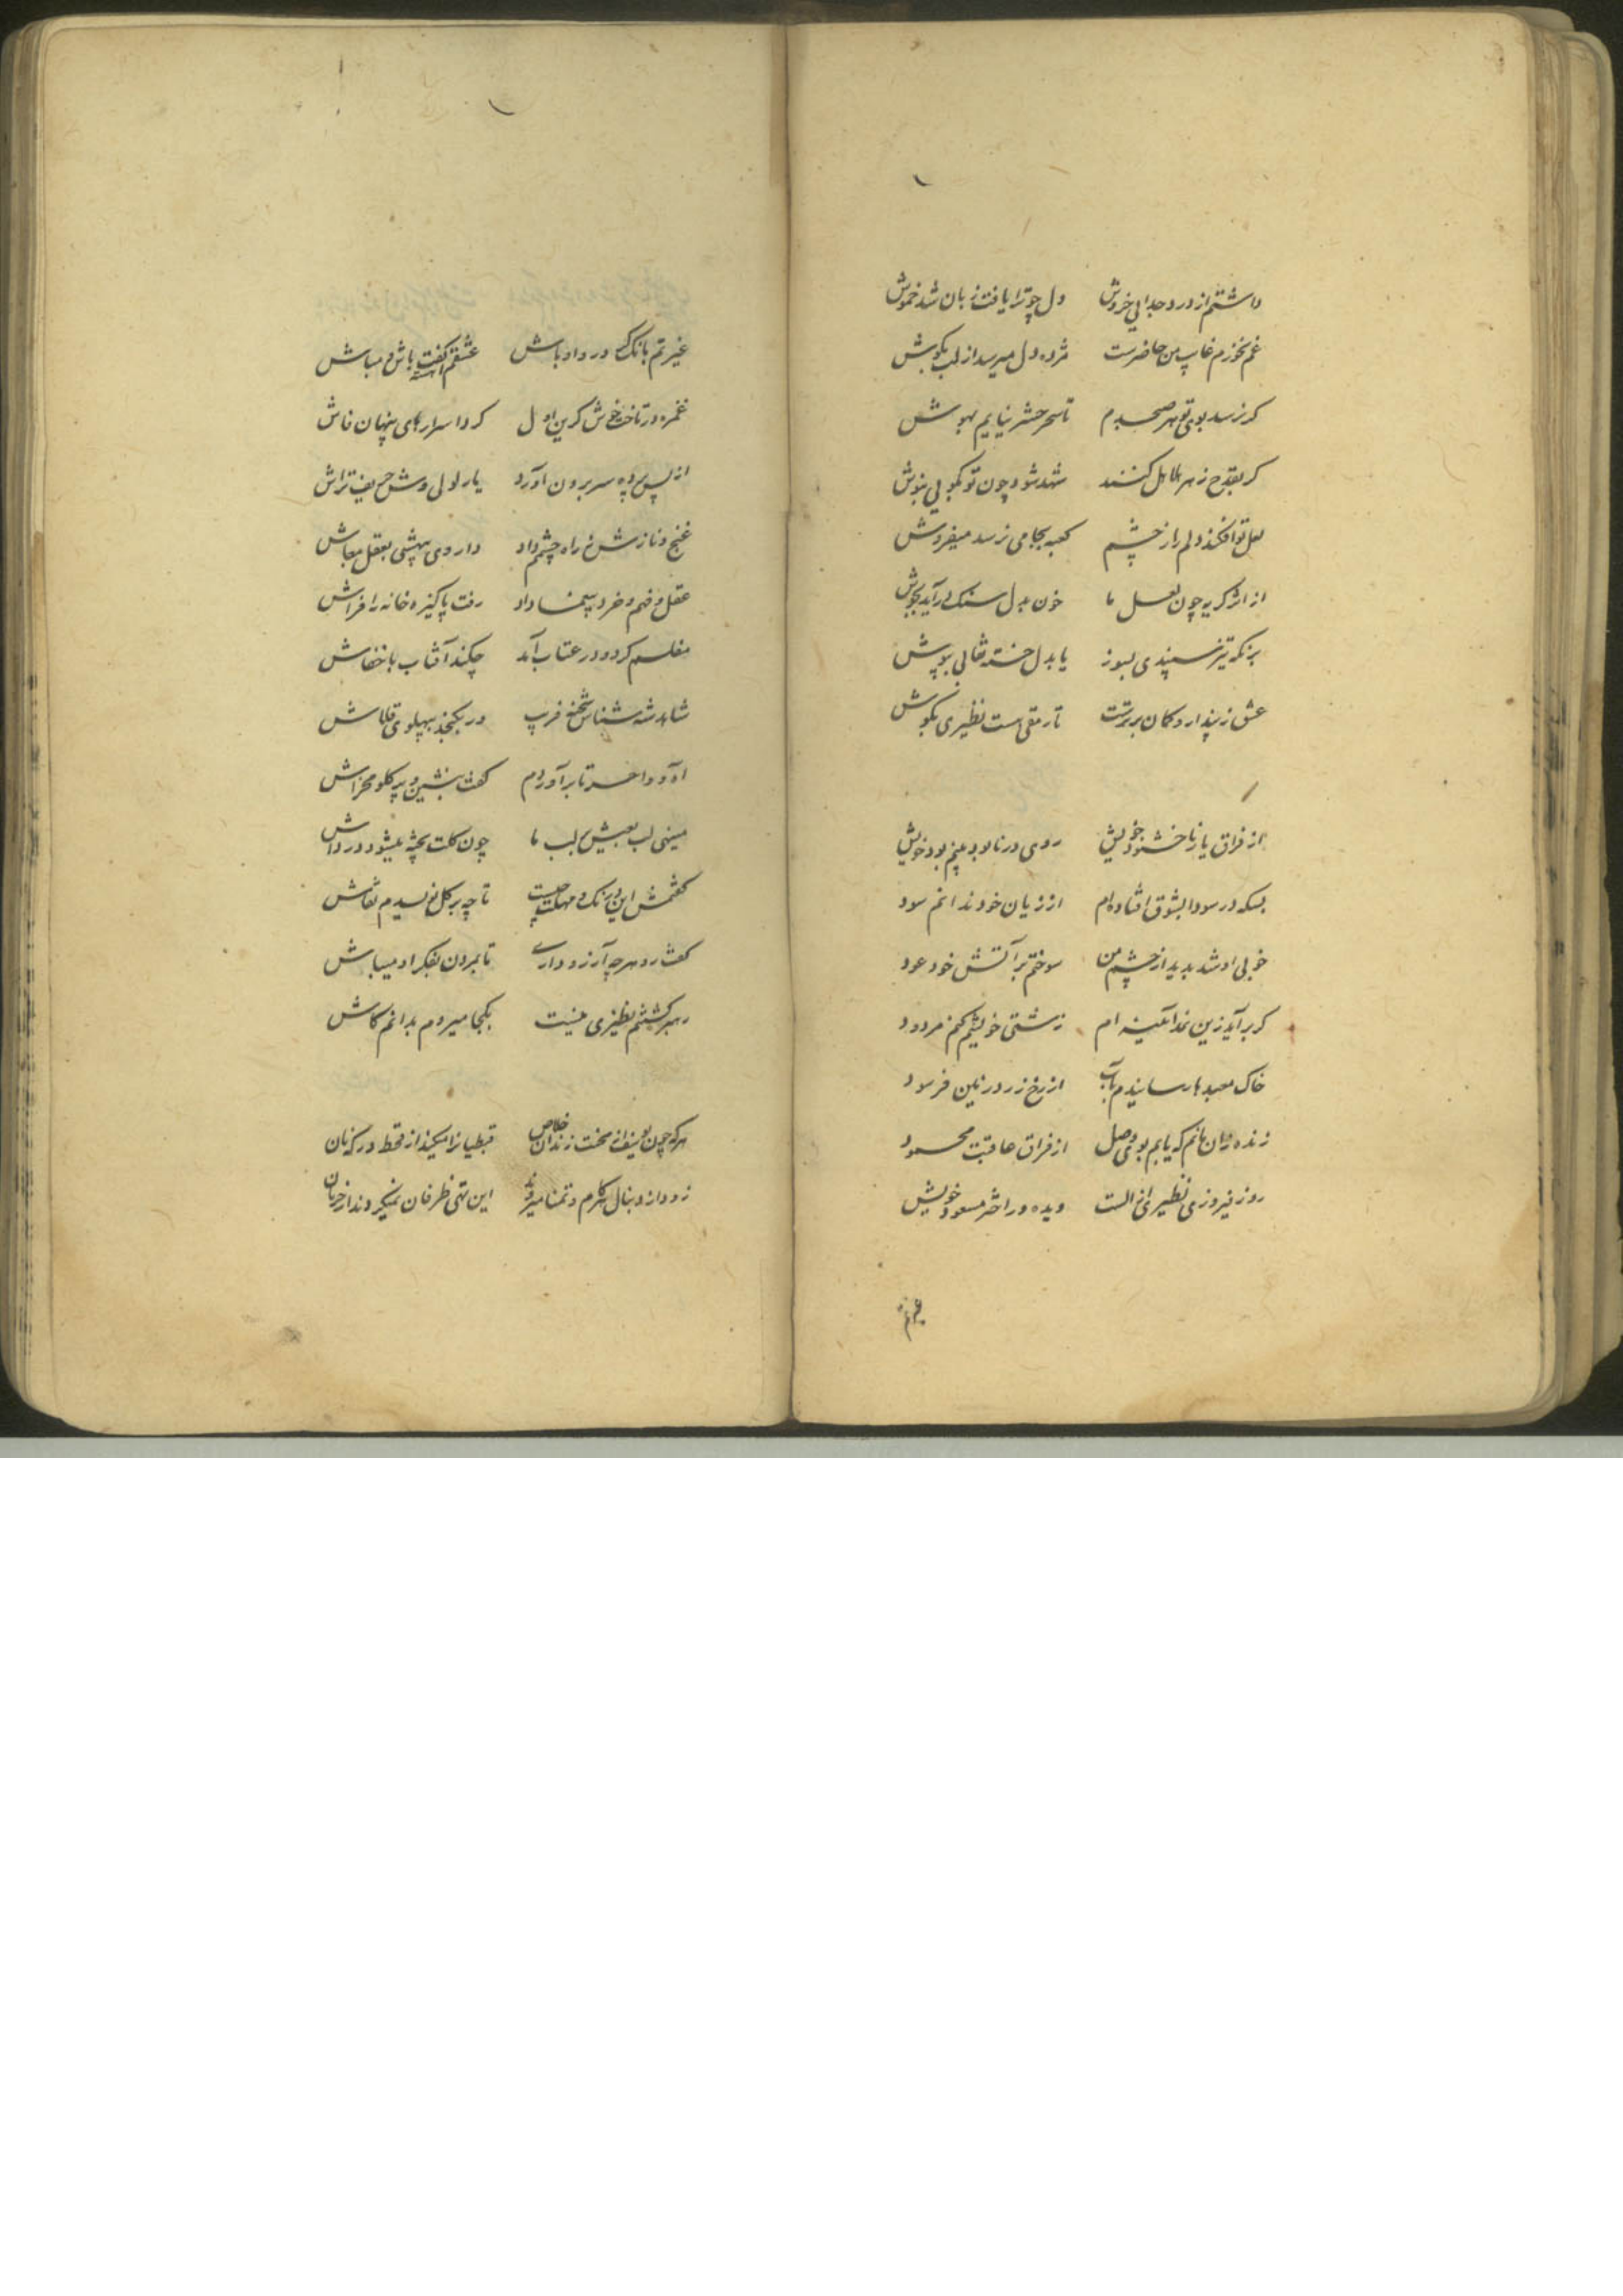 داشتم از درد جدایی خروش دل چو ترا یافت زبان شد خموش
غم نخورم غایب من حاضرست مژده دل میرسد از لب بکوش
کر نرسد بوی تو هر صبحدم تا سحر حشر نیایم بهوش
کر بقدح زهر هلاهل کنند شهد شود چون تو بکویی بنوش
لعل تو افکند دلم را ز چشم کعبه بجامی نرسد میفروش
از اثر کریه چون لعل ما خون بدل سنک درآید بجوش
بر نکه تیز سپندی بسوز یا بدل خسته نقابی بپوش
عشق نپندارد کان برترست تا رمقی هست نظیری بکوش
از فراق یار ناخشنود خویش روی در نابود بینم بود خویش
بسکه در سودا بشوق افتاده ام از زیان خود ندانم سود
خوبی او شد پدید از چشم من سوختم بر آتش خود عود
کر برآید زین نمد آیینه ام زشتی خویشم کند مردود
خاک معبدها رسانیدم بآب از رخ زرد زمین فرسود
زنده زان مانم که یابم بوی وصل از فراق عاقبت محمود
روز فیروزی نظیری از الست دیده در اختر مسعود خویش
غیرتم
غیرتم بانک درد داد باش عشقم آهسته کفت باش و مباش
غمزه در تاخت خوش کزین اول کرد اسرارهای پنهان فاش
از پس پرده سر برون آورد یار لولی وش حریف تراش
غنج و نازش ز راه چشمم داد داروی بیهشی بعقل معاش
عقل و فهم و خرد بیغما داد رفت پاکیزه خانه را فراش
مفلسم کرد و در عتاب آمد چکند آفتاب با خفاش
شاهد شه شناس شحنه فریب در نکنجد بپهلوی قلاش
آه و واحسرتا برآوردم کفت بنشین و پر کلو مخراش
مینهی لب بعیش بر لب ما چون کلت پخته میشود در داش
کفتمش این درنک و مهلت چیست تا چه بر کل نویسدم نقاش
کفت رو هر چه آرزو داری تا بمردن بفکر او میباش
رهبر کشتیم نظیری نیست بکجا میروم بدانم کاش
هر که چون یوسف از محنت زندان خلاص قبطیانرا میکند از قحط در کنعان
زود از دنبال اکرام و تمنا میروند این تهی ظرفان نمیکردند از خوان